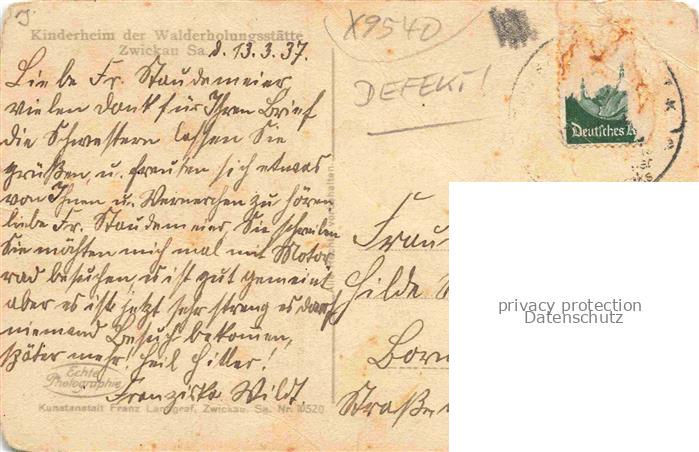 J.
X9540
DEFEKT!
Kinderheim der Walderholungsstätte
Zwickau Sa. d. 13.3.37.
Liebe Fr. Staudemeier
vielen dank für Ihren Brief
die Schwestern lassen Sie
grüßen, u. freuten sich etwas
von Ihnen u. Wernerchen zu hören
liebe Fr. Staudemeier, Sie schreiben
Sie möchten mich mal mit Motor
rad besuchen, es ist gut gemeint
aber es ist jetzt sehr streng es darf
niemand Besuch bekommen,
später mehr! Heil Hitler!
Franziska Wildt
Echte
Photographie
Kunstanstalt Franz Landgraf, Zwickau, Sa. Nr. 10520
Deutsches R
Frau
Hilde S
Born
Straße
privacy protection
Datenschutz